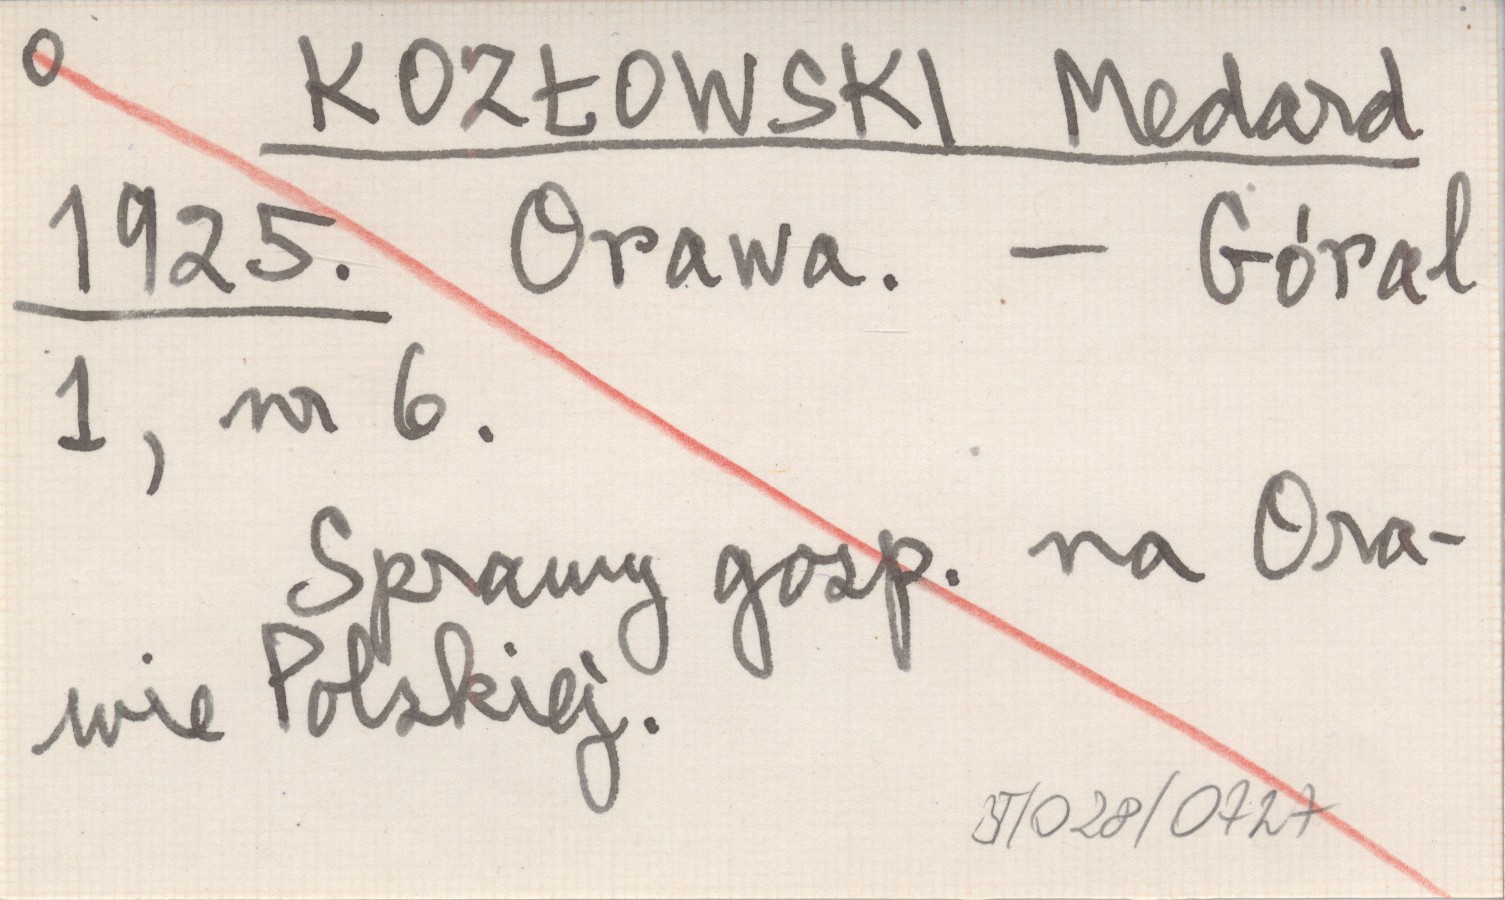 O KOZŁOWSKI Medard
1925. Orawa. – Góral
1, nr 6.
Sprawy gosp. na Ora-
wie Polskiej.
/028/0727